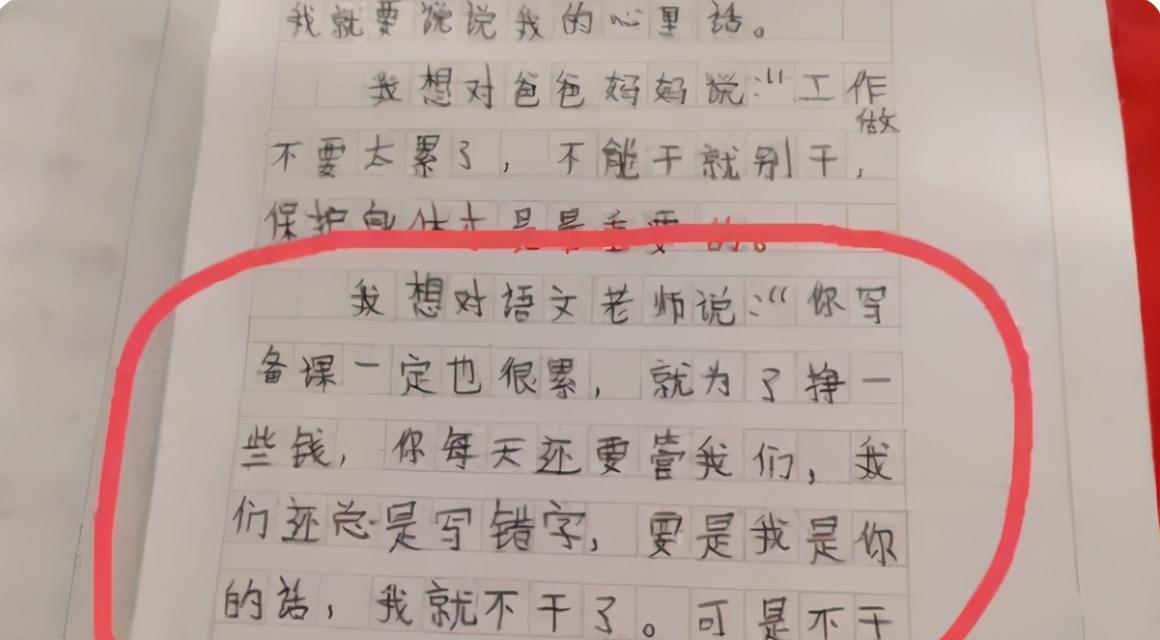 我就要说说我的心里话。
我想对爸爸妈妈说:“工作
做
不要太累了，不能干就别干，
保护身体才是最重要的。
我想对语文老师说:“你写
备课一定也很累，就为了挣一
些钱，你每天还要管我们，我
们还总是写错字，要是我是你
的话，我就不干了。可是不干